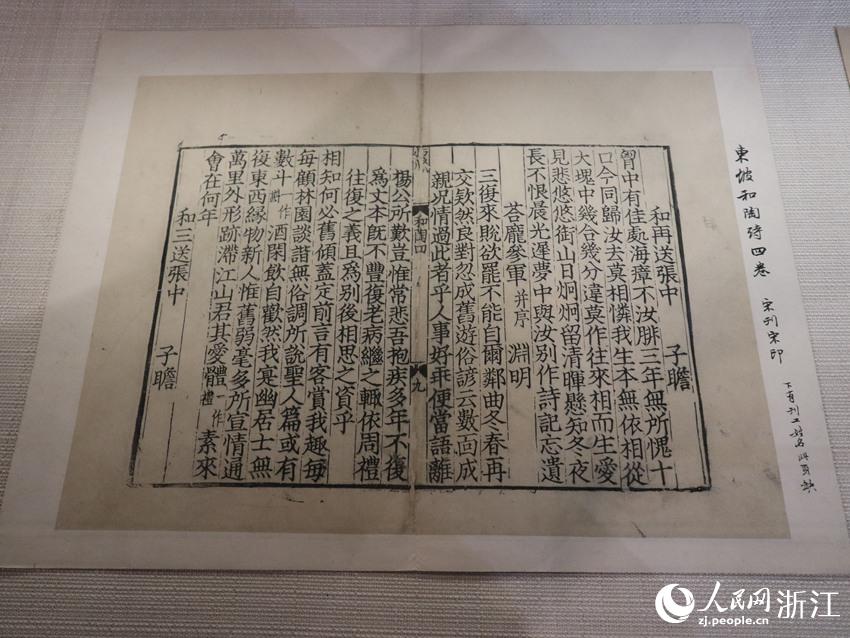 東坡和陶詩四卷
宋刊宋印
下有刊工姓名
和再送張中 子瞻
胷中有佳處海瘴不汝腓三年無所愧十
口今同歸汝去莫相憐我生本無依相從
大塊中幾合幾分違莫作往來相而生愛
見悲悠悠銜山日炯炯留清暉懸知冬夜
長不恨晨光遲夢中與汝別作詩記忘遺
荅龐參軍 并序 淵明
三復來貺欲罷不能自爾鄰曲冬春再
交欵然良對忽成舊遊俗諺云數面成
親况情過此者乎人事好乖便當語離
和陶
九
楊公所歎豈惟常悲吾抱疾多年不復
為文本既不豐復老病繼之輙依周禮
往復之義且為別後相思之資乎
相知何必舊傾蓋定前言有客賞我趣每
每顧林園談諧無俗調所說聖人篇或有
數斗 一作 酒閑飲自歡然我寔幽居士無
復東西緣物新人惟舊弱毫多所宣情通
萬里外形跡滯江山君其愛體 一作禮 素來
會在何年
和三送張中 子瞻
人民网 浙江
zj.people.cn